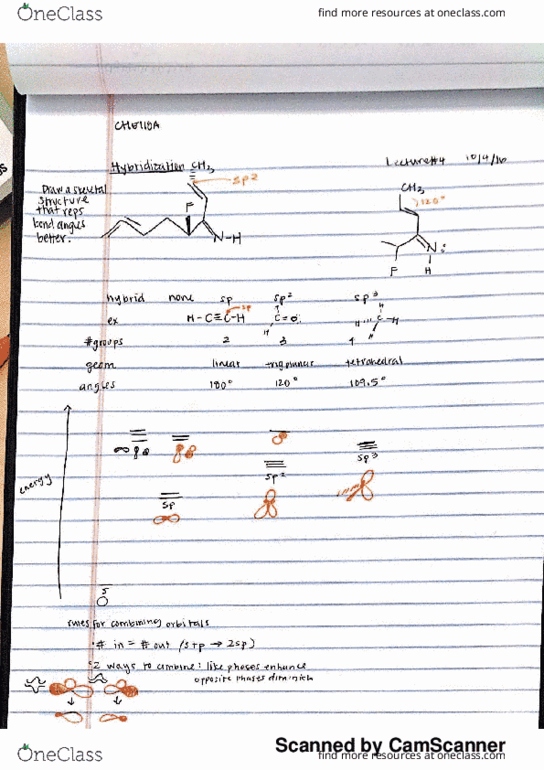 OneClass
find more resources at oneclass.com
CHE118A
Hybridization
Lecture #4 10/4/16
Draw a skeletal
structure
that reps
bond angles
better.
CH₃
sp2
F
N-H
CH₃
120°
N:
F H
hybrid none sp sp² sp³
ex H-C≡C-H C=O
#groups 2 3 4
geom linear trig planar tetrahedral
angles 180° 120° 109.5°
energy
sp
sp²
sp³
s
rules for combining orbitals
·# in = # out (s+p → 2sp)
·2 ways to combine: like phases enhance
opposite phases diminish
Scanned by CamScanner
OneClass
find more resources at oneclass.com